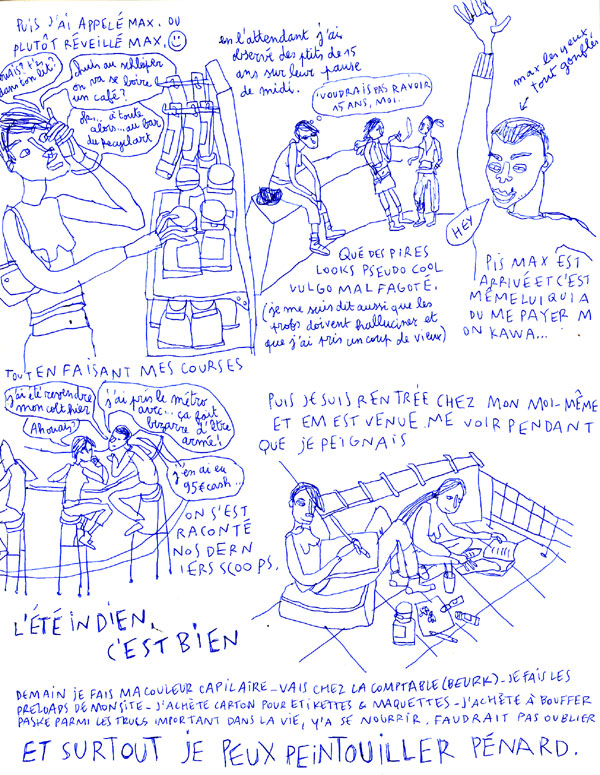 PUIS J'AI APPELÉ MAX. OU
PLUTÔT RÉVEILLÉ MAX.
OUAIS? T'ES
DANS TON LIT?
chuis au schleper
on va se boire
un café?
à toute
alors... au bar
du pecylart
TOUT EN FAISANT MES COURSES
en l'attendant j'ai
observé des ptits de 15
ans sur leur pause
de midi.
VOUDRAIS PAS RAVOIR
15 ANS, MOI..
QUE DES PIRES
LOOKS PSEUDO COOL
VULGO MAL FAGOTÉ.
(je me suis dit aussi que les
profs doivent halluciner et
que j'ai pris un coup de vieux)
max les yeux
tout gonflés
HEY
PIS MAX EST
ARRIVÉ ET C'EST
MÊME LUI QUI A
DU ME PAYER M
ON KAWA...
j'ai été revendre
mon colt hier
Ah ouais?
j'ai pris le métro
avec... ça fait
bizarre d'être
armé!
j'en ai eu
95€ cash...
ON S'EST
RACONTÉ
NOS DERN
IERS SCOOPS.
PUIS JE SUIS RENTRÉE CHEZ MON MOI-MÊME
ET EM EST VENUE ME VOIR PENDANT
QUE JE PEIGNAIS
L'ÉTÉ INDIEN,
C'EST BIEN
DEMAIN JE FAIS MA COULEUR CAPILAIRE_VAIS CHEZ LA COMPTABLE (BEURK)_JE FAIS LES
PRELOADS DE MON SITE_J'ACHÈTE CARTON POUR ETIKETTES & MAQUETTES_J'ACHÈTE À BOUFFER
PASKE PARMI LES TRUCS IMPORTANT DANS LA VIE, Y'A SE NOURRIR. FAUDRAIT PAS OUBLIER
ET SURTOUT JE PEUX PEINTOUILLER PÉNARD.